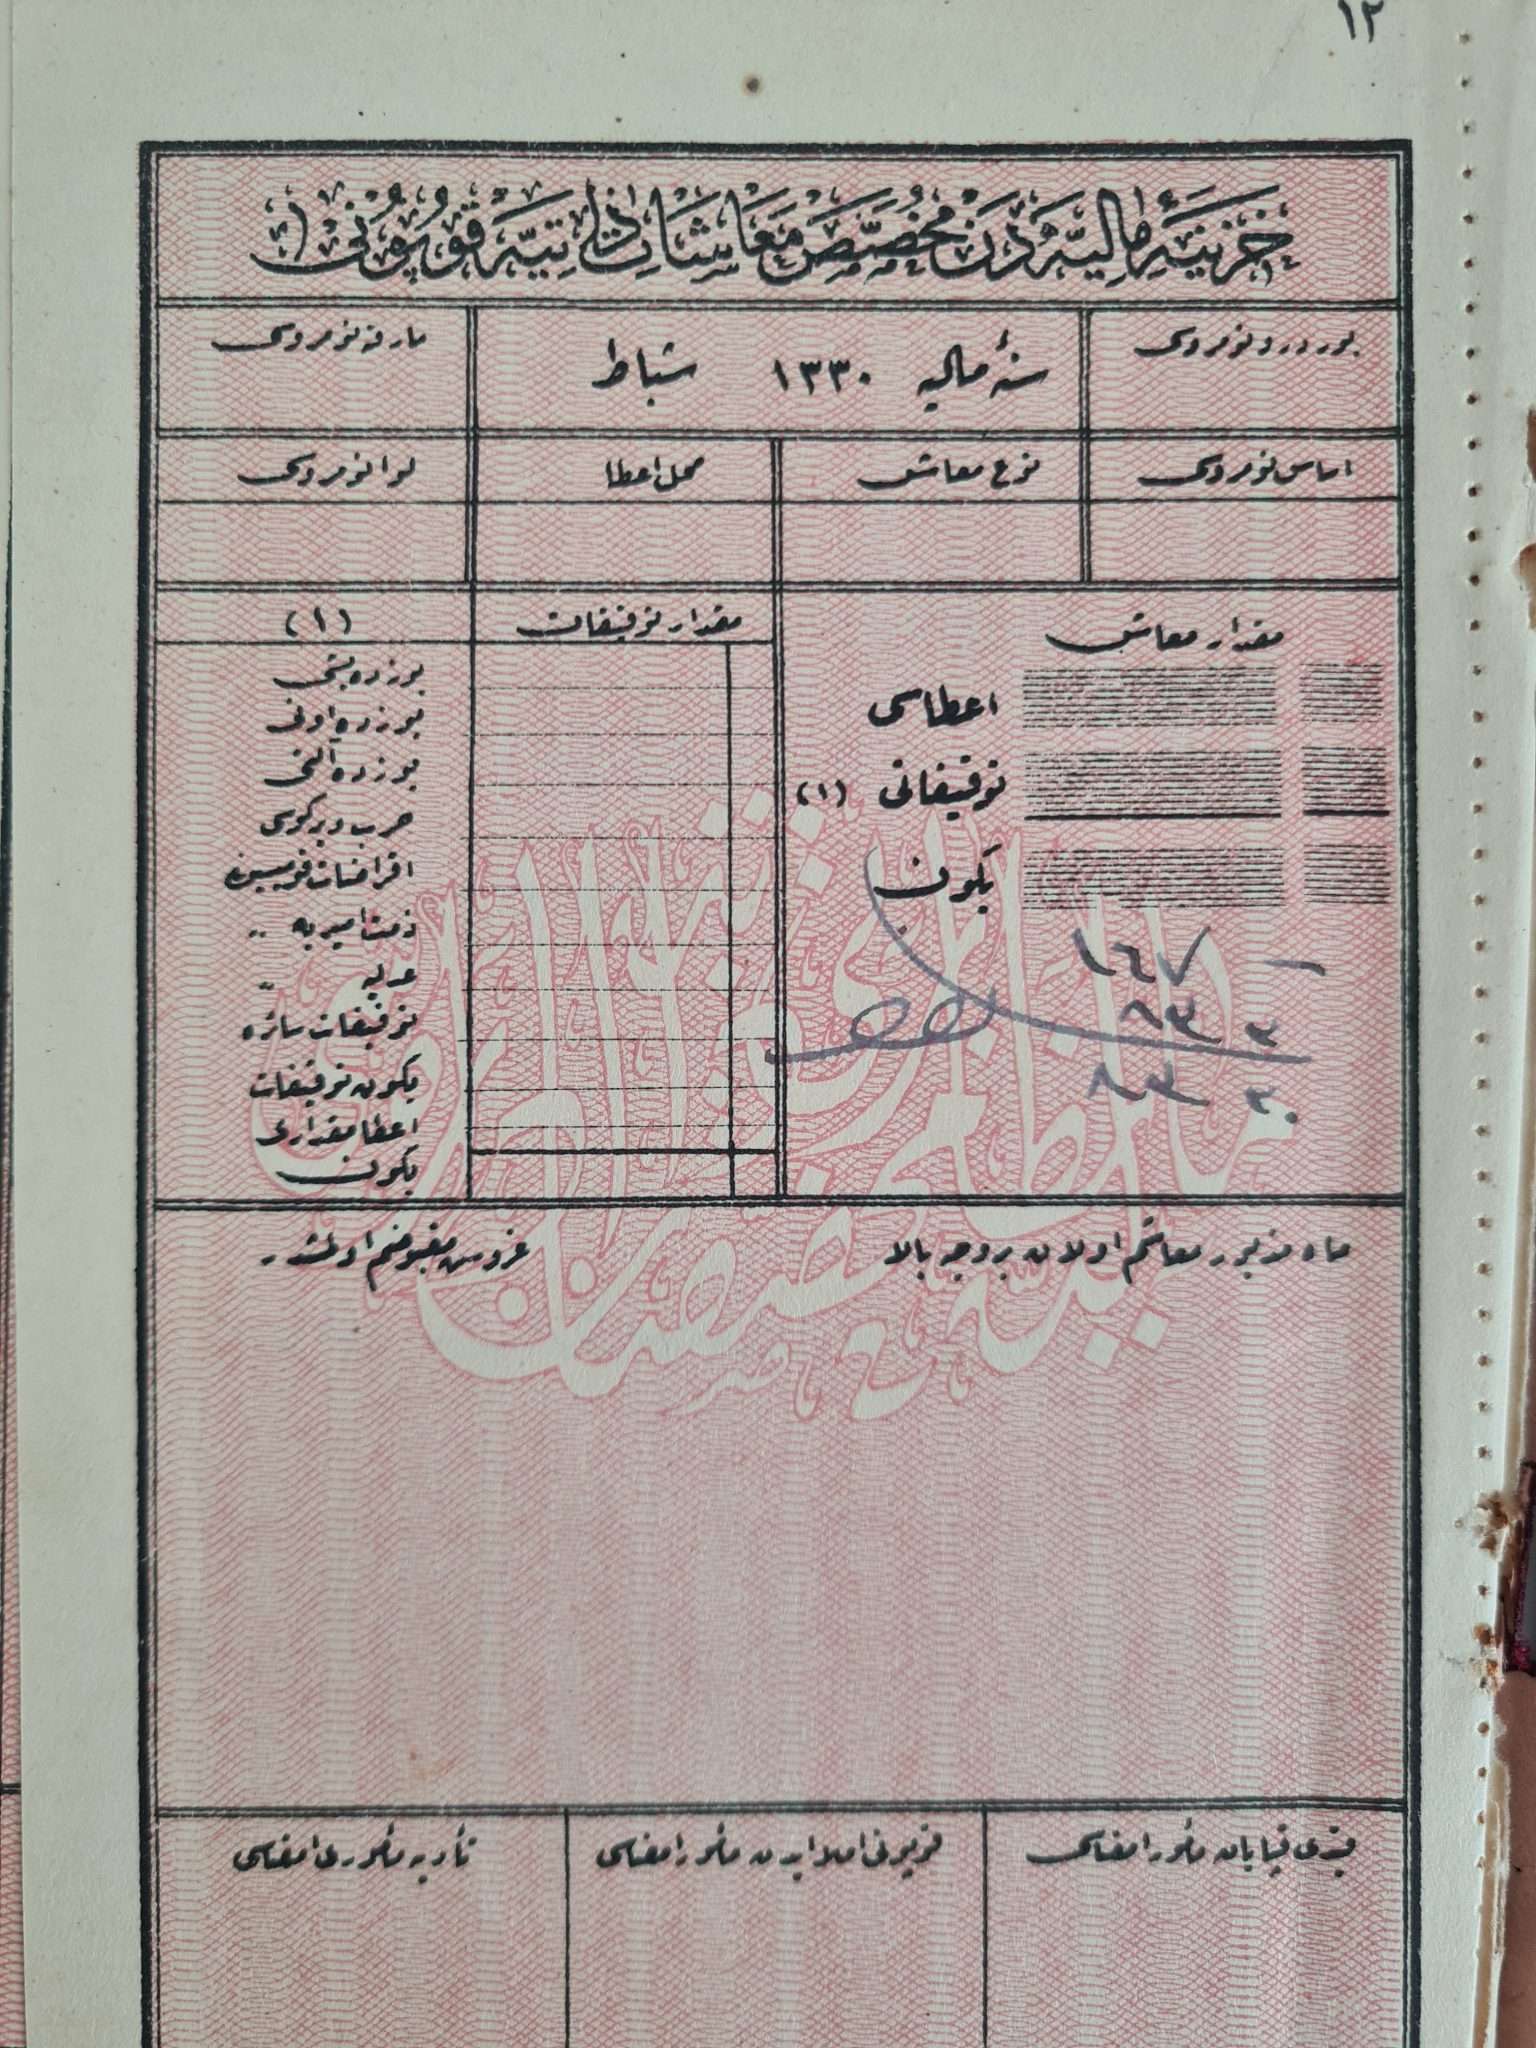 ١٢
خزينۀ ماليه‌دن مخصص معاشات ذاتيه قوپونى (١)
بوردرو نومروسى
سنۀ ماليه ١٣٣٠ شباط
مارقه نومروسى
اساس نومروسى
نوع معاشى
محل اعطا
لوا نومروسى
مقدار معاش
اعطاسى
توقيفاتى (١)
يكون
١٦٧ —
٨٣
مقدار توقيفات
(١)
يوزده بشى
يوزده اونى
يوزده آلتى
حرب ويركوسى
اقراضات قوميسيون
ذمت اميريه ,,
عدليه ,,
توقيفات سائره
يكون توقيفات
اعطا مقدارى
يكون
ماه مذبور معاشم اولان بروجه بالا غروش مقبوضم اولمشدر
قيدى قپايان مأمور امضاسى
قوپونى املا ايدن مأمور امضاسى
تأديه مأمورى امضاسى